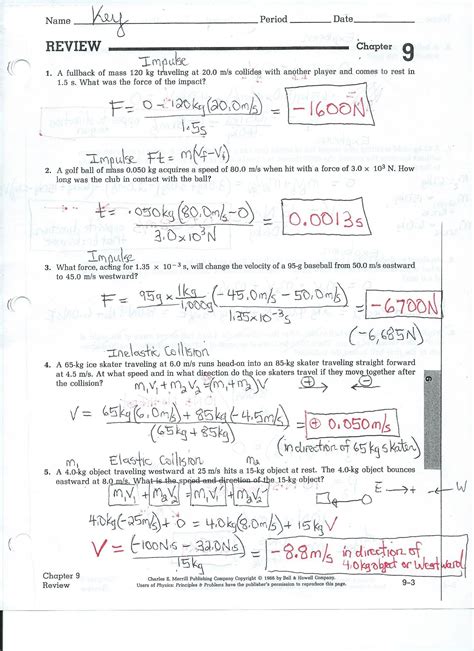 Name Key Period Date
REVIEW Chapter 9
Impulse
1. A fullback of mass 120 kg traveling at 20.0 m/s collides with another player and comes to rest in
1.5 s. What was the force of the impact?
F = 0 - 120kg(20.0m/s) / 1.5s = -1600N
Impulse Ft = m(Vf-Vi)
2. A golf ball of mass 0.050 kg acquires a speed of 80.0 m/s when hit with a force of 3.0 × 10³ N. How
long was the club in contact with the ball?
t = .050kg(80.0m/s-0) / 3.0×10³N = 0.0013s
Impulse
3. What force, acting for 1.35 × 10⁻³ s, will change the velocity of a 95-g baseball from 50.0 m/s eastward
to 45.0 m/s westward?
F = 95g × 1kg/1,000g (-45.0m/s - 50.0m/s) / 1.35×10⁻³s = -6700N
(-6,685N)
Inelastic Collision
4. A 65-kg ice skater traveling at 6.0 m/s runs head-on into an 85-kg skater traveling straight forward
at 4.5 m/s. At what speed and in what direction do the ice skaters travel if they move together after
the collision? m₁V₁ + m₂V₂ = (m₁+m₂)V ⊕ ⊖
V = 65kg(6.0m/s) + 85kg(-4.5m/s) / (65kg + 85kg) = ⊕ 0.050m/s
(in direction of 65kg skater)
m₁ Elastic Collision m₂
5. A 4.0-kg object traveling westward at 25 m/s hits a 15-kg object at rest. The 4.0-kg object bounces
eastward at 8.0 m/s. What is the speed and direction of the 15-kg object?
m₁V₁ + m₂V₂ = m₁V₁' + m₂V₂' E → + ← W
4.0kg(-25m/s) + 0 = 4.0kg(8.0m/s) + 15kgV
V = (-100N·s - 32.0N·s) / 15kg = -8.8m/s in direction of
4.0kg object or Westward
6
Chapter 9
Review
Charles E. Merrill Publishing Company Copyright © 1986 by Bell & Howell Company.
Users of Physics: Principles & Problems have the publisher's permission to reproduce this page.
9-3